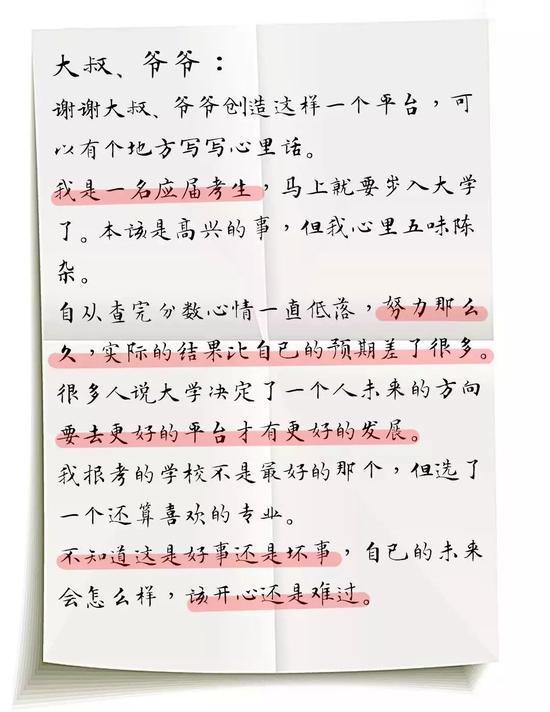 大叔、爷爷：
谢谢大叔、爷爷创造这样一个平台，可
以有个地方写写心里话。
我是一名应届考生，马上就要步入大学
了。本该是高兴的事，但我心里五味陈
杂。
自从查完分数心情一直低落，努力那么
久，实际的结果比自己的预期差了很多。
很多人说大学决定了一个人未来的方向
要去更好的平台才有更好的发展。
我报考的学校不是最好的那个，但选了
一个还算喜欢的专业。
不知道这是好事还是坏事，自己的未来
会怎么样，该开心还是难过。